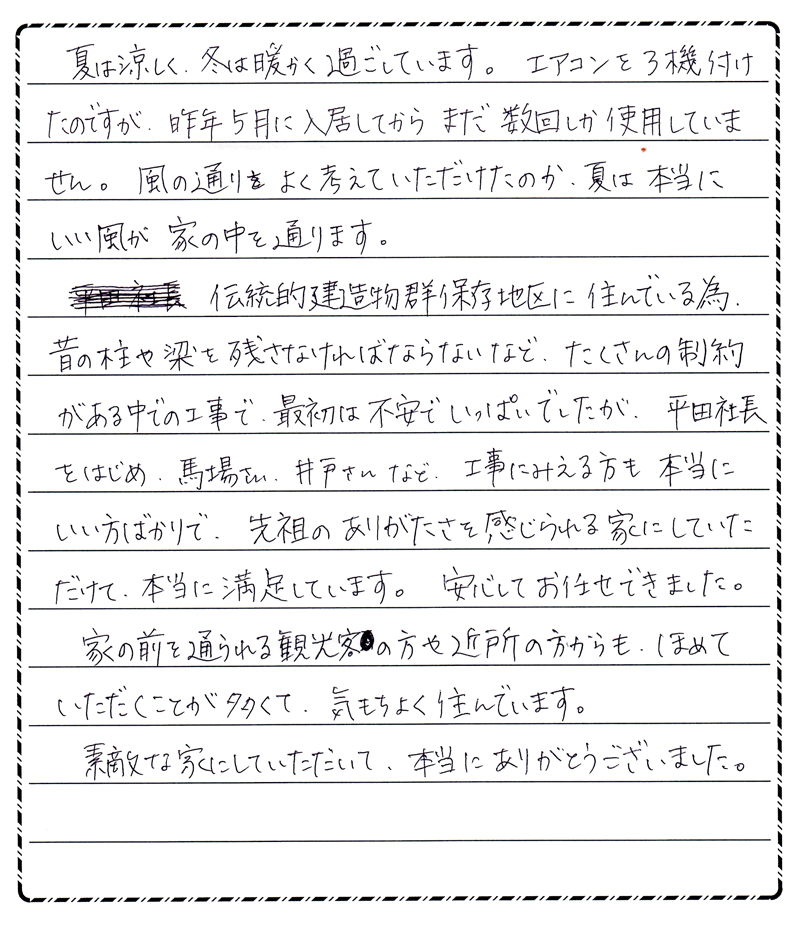 夏は涼しく、冬は暖かく過ごしています。 エアコンを3機付け
たのですが、昨年5月に入居してから まだ 数回しか使用していま
せん。 風の通りを よく考えていただけたのか、夏は 本当に
いい風が 家の中を通ります。
伝統的建造物群保存地区に 住んでいる為、
昔の柱や梁を残さなければならないなど、たくさんの制約
がある中での工事で、最初は不安でいっぱいでしたが、 平田社長
をはじめ、馬場さん、井戸さんなど、工事にみえる方も 本当に
いい方ばかりで、 先祖のありがたさを感じられる家にしていた
だけて、本当に満足しています。 安心してお任せできました。
家の前を通られる観光客の方や近所の方からも、ほめて
いただくことが多くて、気もちよく住んでいます。
素敵な家にしていただいて、本当にありがとうございました。